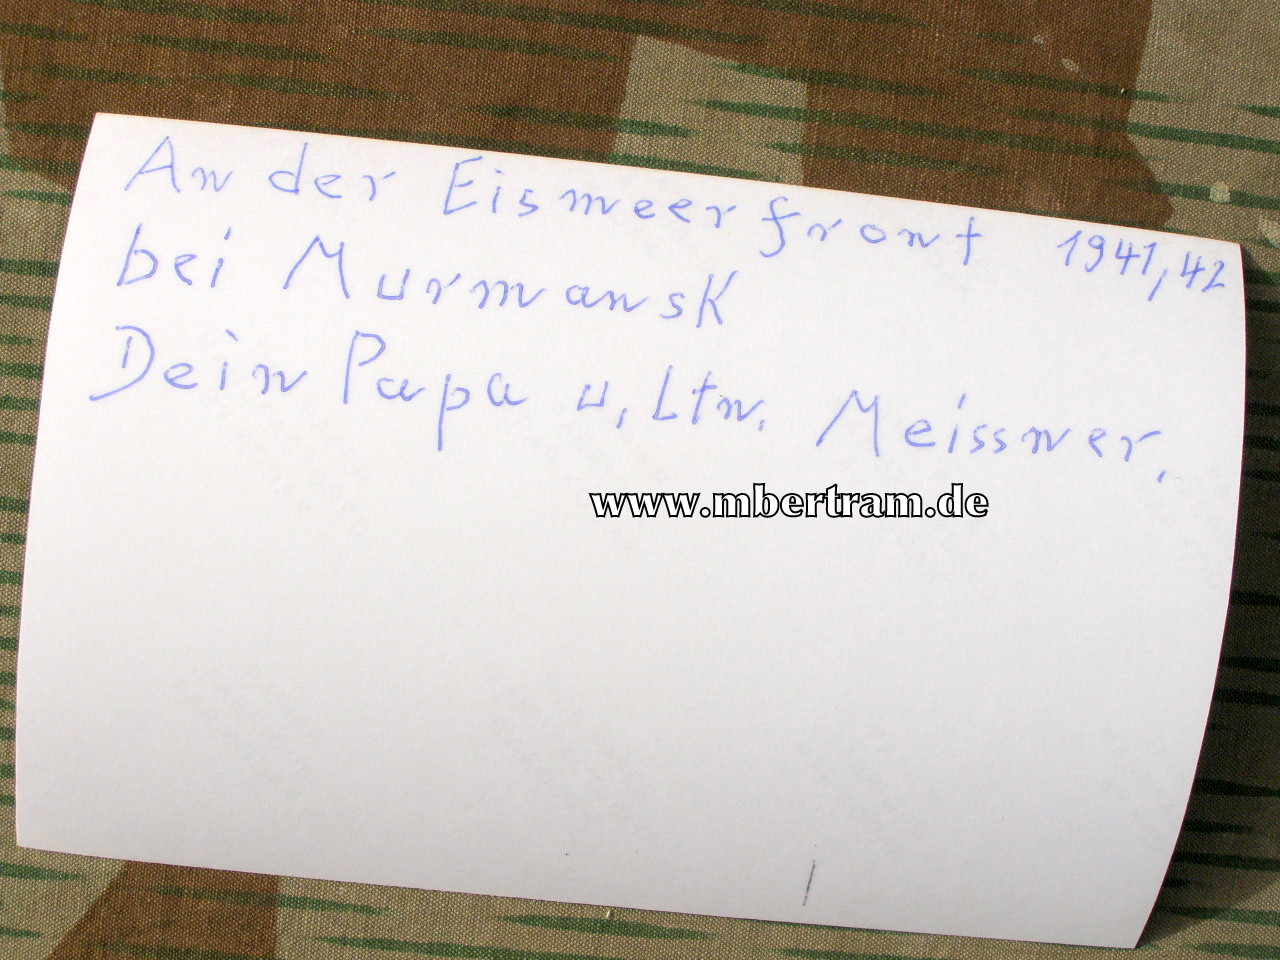 An der Eismeerfront 1941,42
bei Murmansk
Dein Papa u. Ltn. Meissner.
www.mbertram.de